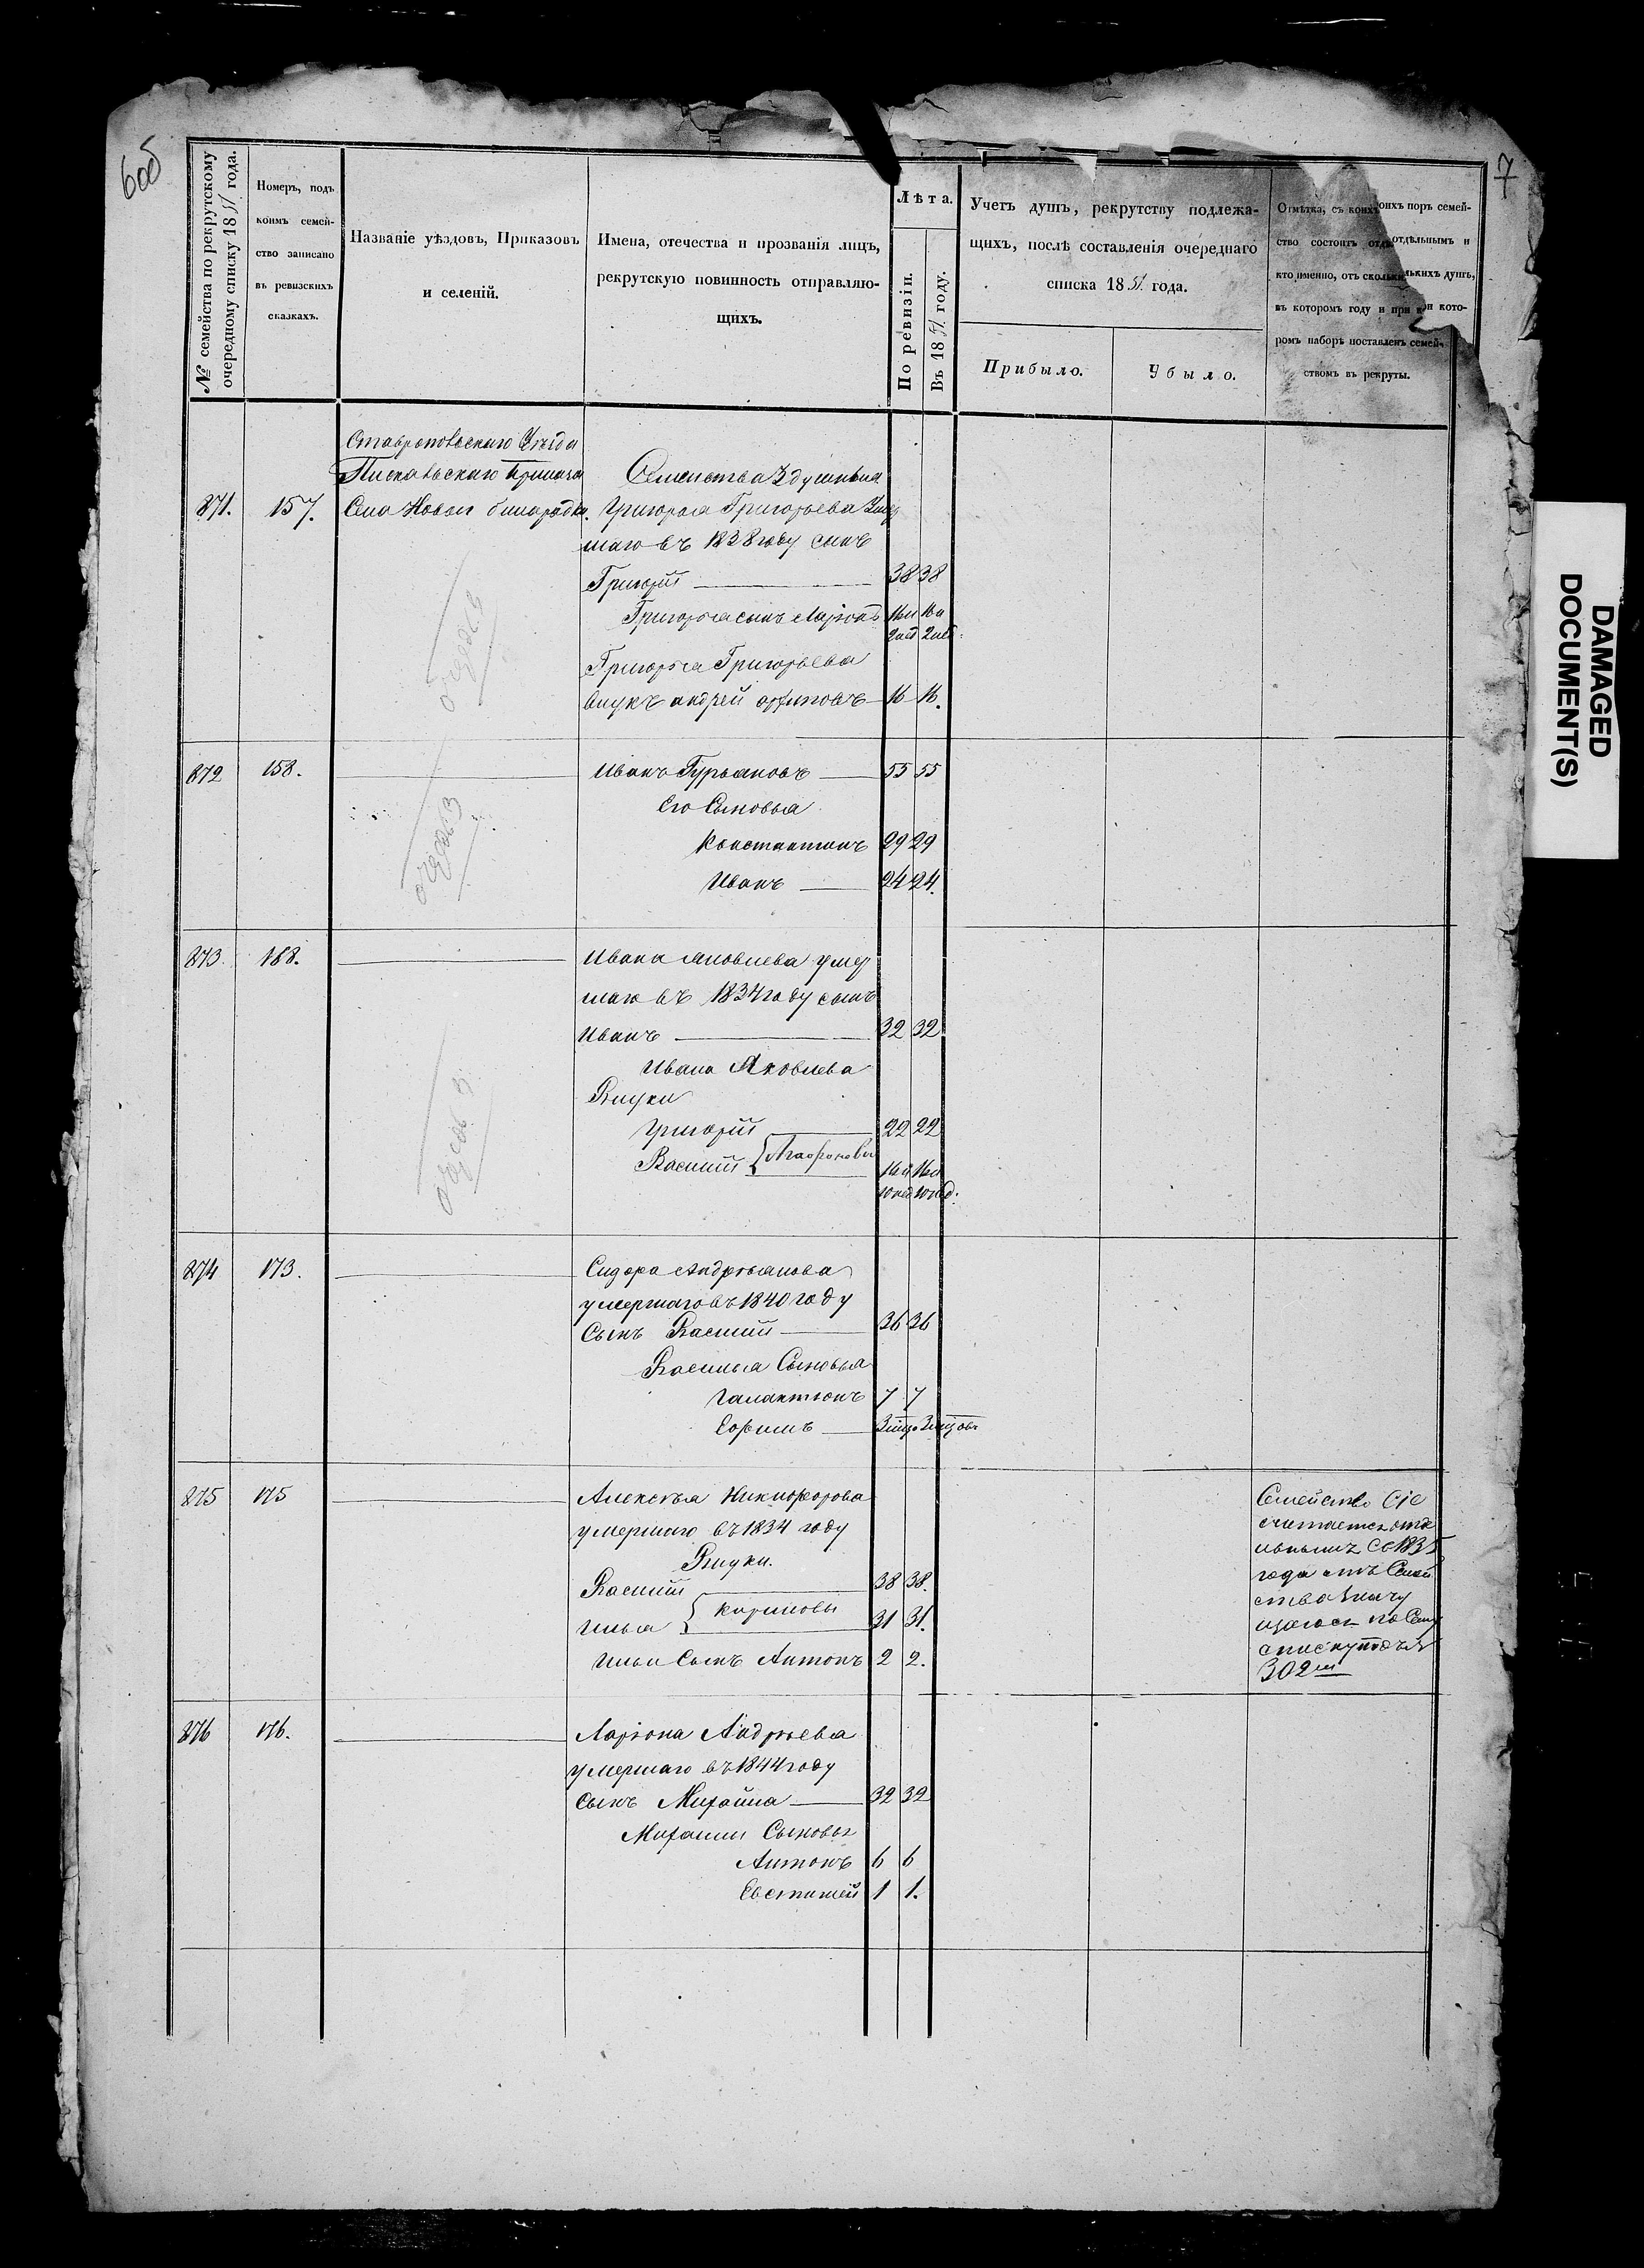 6об
7
№ семейства по рекрутскому
очередному списку 1851 года.
Номеръ, подъ
коимъ семей-
ство записано
въ ревизскихъ
сказкахъ.
Названіе уѣздовъ, Приказовъ
и селеній.
Имена, отечества и прозванія лицъ,
рекрутскую повинность отправляю-
щихъ.
Лѣта.
По ревизіи.
Въ 1851 году.
Учетъ душъ, рекрутству подлежа-
щихъ, послѣ составленія очереднаго
списка 1851 года.
Прибыло.
Убыло.
Отмѣтка, съ коихъ поръ семей-
ство состоитъ отдѣльнымъ и
кто именно, отъ сколькихъ душъ,
въ которомъ году и при кото-
ромъ наборѣ поставленъ семей-
ствомъ въ рекруты.
Ставропольскаго Уѣзда
Приказа
871. 157. Села Новой бинарадки.
Семейства 3 душныя
Григорья Григорьева Умер
шаго въ 1838 году сынъ
Григорій 38 38
Григорья сынъ Ларіонъ 16 и 16 и
2 мѣс 2 мѣс:
Григорья Григорьева
внукъ андрей 16 16.
872 158. Иванъ Гурьяновъ 55 55
Его Сыновья
Константинъ 29 29
Иванъ 24 24.
873. 168. Ивана яковлева умер
шаго въ 1834 году сынъ
Иванъ 32 32
Ивана Яковлева
Внуки
Григорій 22 22
Василій 16 и 16 и
874 173. Сидора Андреянова
умершаго въ 1840 году
Сынъ Василій 36 36
Василья Сыновья
Галактіонъ 7 7
Ефимъ
875 175 Алексѣя Никифорова
умершаго въ 1834 году
Внуки.
Василій 38 38.
Кириловы
Илья 31 31.
Ильи Сынъ Антонъ 2 2.
Семейство Сіе
считается отдѣ
льнымъ Съ 1835
года отъ Семей
ства Значу
щагося по Сему
списку подъ №
302м
876 176. Ларіона Андреева
умершаго въ 1844 году
Сынъ Михайла 32 32
Михайлы Сыновья
Антонъ 6 6
Евстигней 1 1.
DAMAGED
DOCUMENT(S)